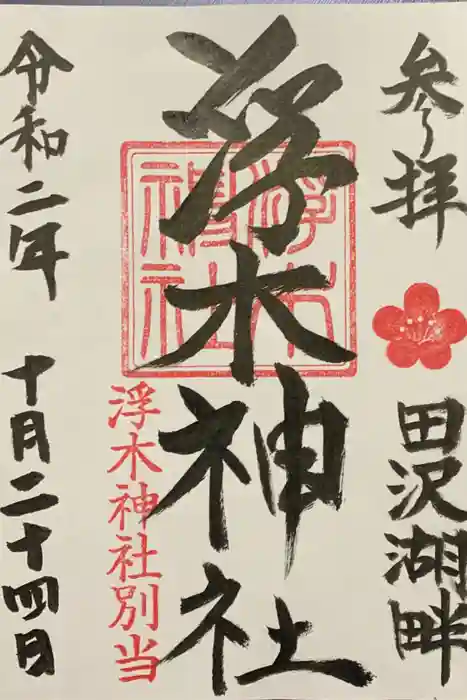 参拝
田沢湖畔
浮木神社
浮木神社別当
令和二年
十月二十四日